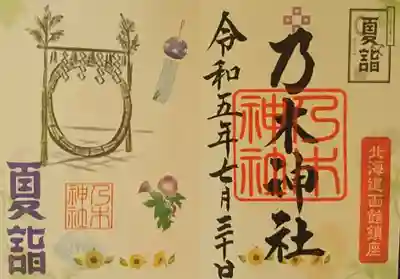 夏詣
乃木神社
乃木神社
北海道函館鎮座
令和五年七月三十日
夏詣
乃木神社